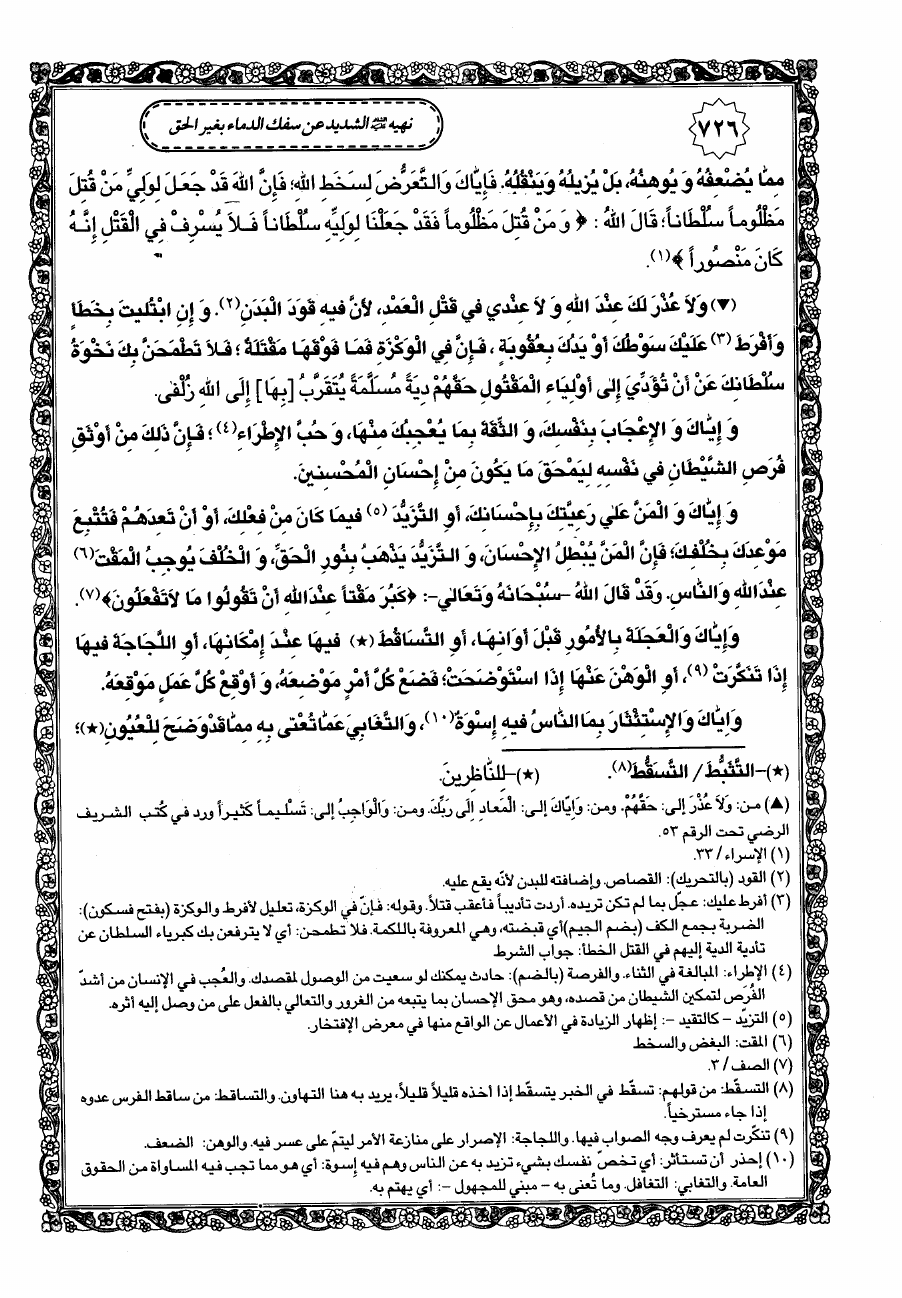 ٧٢٦
نهيه ﷺ الشديد عن سفك الدماء بغير الحق
مِمّا يُضْعِفُهُ وَ يُوهِنُهُ، بَلْ يُزيلُهُ وَيَنْقُلُهُ. فَإِيّاكَ وَالتَّعَرُّضَ لِسَخَطِ اللهِ؛ فَإِنَّ اللهَ قَدْ جَعَلَ لِوَلِيِّ مَنْ قُتِلَ
مَظْلُوماً سُلْطَاناً؛ قَالَ اللهُ : ﴿ وَ مَنْ قُتِلَ مَظْلُوماً فَقَدْ جَعَلْنَا لِوَلِيِّهِ سُلْطَاناً فَلاَ يُسْرِفْ فِي الْقَتْلِ إِنَّهُ
كَانَ مَنْصُوراً ﴾(١).
(▼) وَلاَ عُذْرَ لَكَ عِنْدَ اللهِ وَ لاَ عِنْدي في قَتْلِ الْعَمْدِ، لأَنَّ فيهِ قَوَدَ الْبَدَنِ(٢). وَ إِنِ ابْتُليتَ بِخَطَأٍ
وَأَفْرَطَ (٣) عَلَيْكَ سَوْطُكَ أَوْ يَدُكَ بِعُقُوبَةٍ ، فَإِنَّ فِي الْوَكْزَةِ فَمَا فَوْقَهَا مَقْتَلَةً ؛ فَلاَ تَطْمَحَنَّ بِكَ نَخْوَةُ
سُلْطَانِكَ عَنْ أَنْ تُؤَدِّيَ إِلى أَوْلِيَاءِ الْمَقْتُولِ حَقَّهُمْ دِيَةً مُسَلَّمَةً يُتَقَرَّبُ [بِهَا] إِلَى اللهِ زُلْفى.
وَ إِيّاكَ وَ الإِعْجَابَ بِنَفْسِكَ، وَ الثِّقَةَ بِمَا يُعْجِبُكَ مِنْهَا، وَ حُبَّ الإِطْرَاءِ(٤)؛ فَإِنَّ ذلِكَ مِنْ أَوْثَقِ
فُرَصِ الشَّيْطَانِ في نَفْسِهِ لِيَمْحَقَ مَا يَكُونُ مِنْ إِحْسَانِ الْمُحْسِنينَ.
وَ إِيّاكَ وَ الْمَنَّ عَلى رَعِيَّتِكَ بِإِحْسَانِكَ، أَوِ التَّزَيُّدَ (٥) فيمَا كَانَ مِنْ فِعْلِكَ، أَوْ أَنْ تَعِدَهُمْ فَتُتْبِعَ
مَوْعِدَكَ بِخُلْفِكَ؛ فَإِنَّ الْمَنَّ يُبْطِلُ الإِحْسَانَ، وَ التَّزَيُّدَ يَذْهَبُ بِنُورِ الْحَقِّ، وَ الْخُلْفَ يُوجِبُ الْمَقْتَ(٦)
عِنْدَاللهِ وَالنّاسِ. وَقَدْ قَالَ اللهُ –سُبْحَانَهُ وَتَعَالى–: ﴿كَبُرَ مَقْتاً عِنْدَاللهِ أَنْ تَقُولُوا مَا لاَتَفْعَلُونَ﴾(٧).
وَإِيّاكَ وَالْعَجَلَةَ بِالأُمُورِ قَبْلَ أَوَانِهَا، أَوِ التَّسَاقُطَ (★) فيهَا عِنْدَ إِمْكَانِهَا، أَوِ اللَّجَاجَةَ فيهَا
إِذَا تَنَكَّرَتْ (٩)، أَوِ الْوَهْنَ عَنْهَا إِذَا اسْتَوْضَحَتْ؛ فَضَعْ كُلَّ أَمْرٍ مَوْضِعَهُ، وَ أَوْقِعْ كُلَّ عَمَلٍ مَوْقِعَهُ.
وَإِيّاكَ وَالإِسْتِئْثَارَ بِمَا النّاسُ فيهِ إِسْوَةٌ(١٠)، وَالتَّغَابِيَ عَمّا تُعْنى بِهِ مِمّا قَدْ وَضَحَ لِلْعُيُونِ(★)؛
(★)–التَّثَبُّطَ / التَّسَقُّطَ(٨). (★)–لِلنّاظِرينَ.
(▲) من: وَلاَ عُذْرَ إلى: حَقَّهُمْ. ومن: وَإِيّاكَ إلى: الْمَعَادِ إِلَى رَبِّكَ. ومن: وَالْوَاجِبُ إلى: تَسْليماً كَثيراً ورد في كتب الشريف
الرضي تحت الرقم ٥٣.
(١) الإسراء / ٣٣.
(٢) القود (بالتحريك): القصاص. وإضافته للبدن لأنّه يقع عليه.
(٣) أفرط عليك: عجّل بما لم تكن تريده. أردت تأديباً فأعقب قتلاً. وقوله: فإنّ في الوكزة، تعليل لأفرط والوكزة (بفتح فسكون):
الضربة بجمع الكف (بضم الجيم) أي قبضته، وهي المعروفة باللكمة. فلا تطمحن: أي لا يترفعن بك كبرياء السلطان عن
تأدية الدية إليهم في القتل الخطأ: جواب الشرط
(٤) الإطراء: المبالغة في الثناء. والفرصة (بالضم): حادث يمكنك لو سعيت من الوصول لمقصدك. والعُجب في الإنسان من أشدّ
الفُرَص لتمكين الشيطان من قصده، وهو محق الإحسان بما يتبعه من الغرور والتعالي بالفعل على من وصل إليه أثره.
(٥) التزيّد – كالتقيد –: إظهار الزيادة في الأعمال عن الواقع منها في معرض الإفتخار.
(٦) المقت: البغض والسخط
(٧) الصف / ٣.
(٨) التسقّط: من قولهم: تسقّط في الخبر يتسقّط إذا أخذه قليلاً قليلاً، يريد به هنا التهاون. والتساقط: من ساقط الفرس عدوه
إذا جاء مسترخياً.
(٩) تنكّرت لم يعرف وجه الصواب فيها. واللجاجة: الإصرار على منازعة الأمر ليتمّ على عسر فيه. والوهن: الضعف.
(١٠) إحذر أن تستأثر: أي تخصّ نفسك بشيء تزيد به عن الناس وهم فيه إسوة: أي هو مما تجب فيه المساواة من الحقوق
العامة. والتغابي: التغافل. وما تُعنى به – مبني للمجهول –: أي يهتم به.